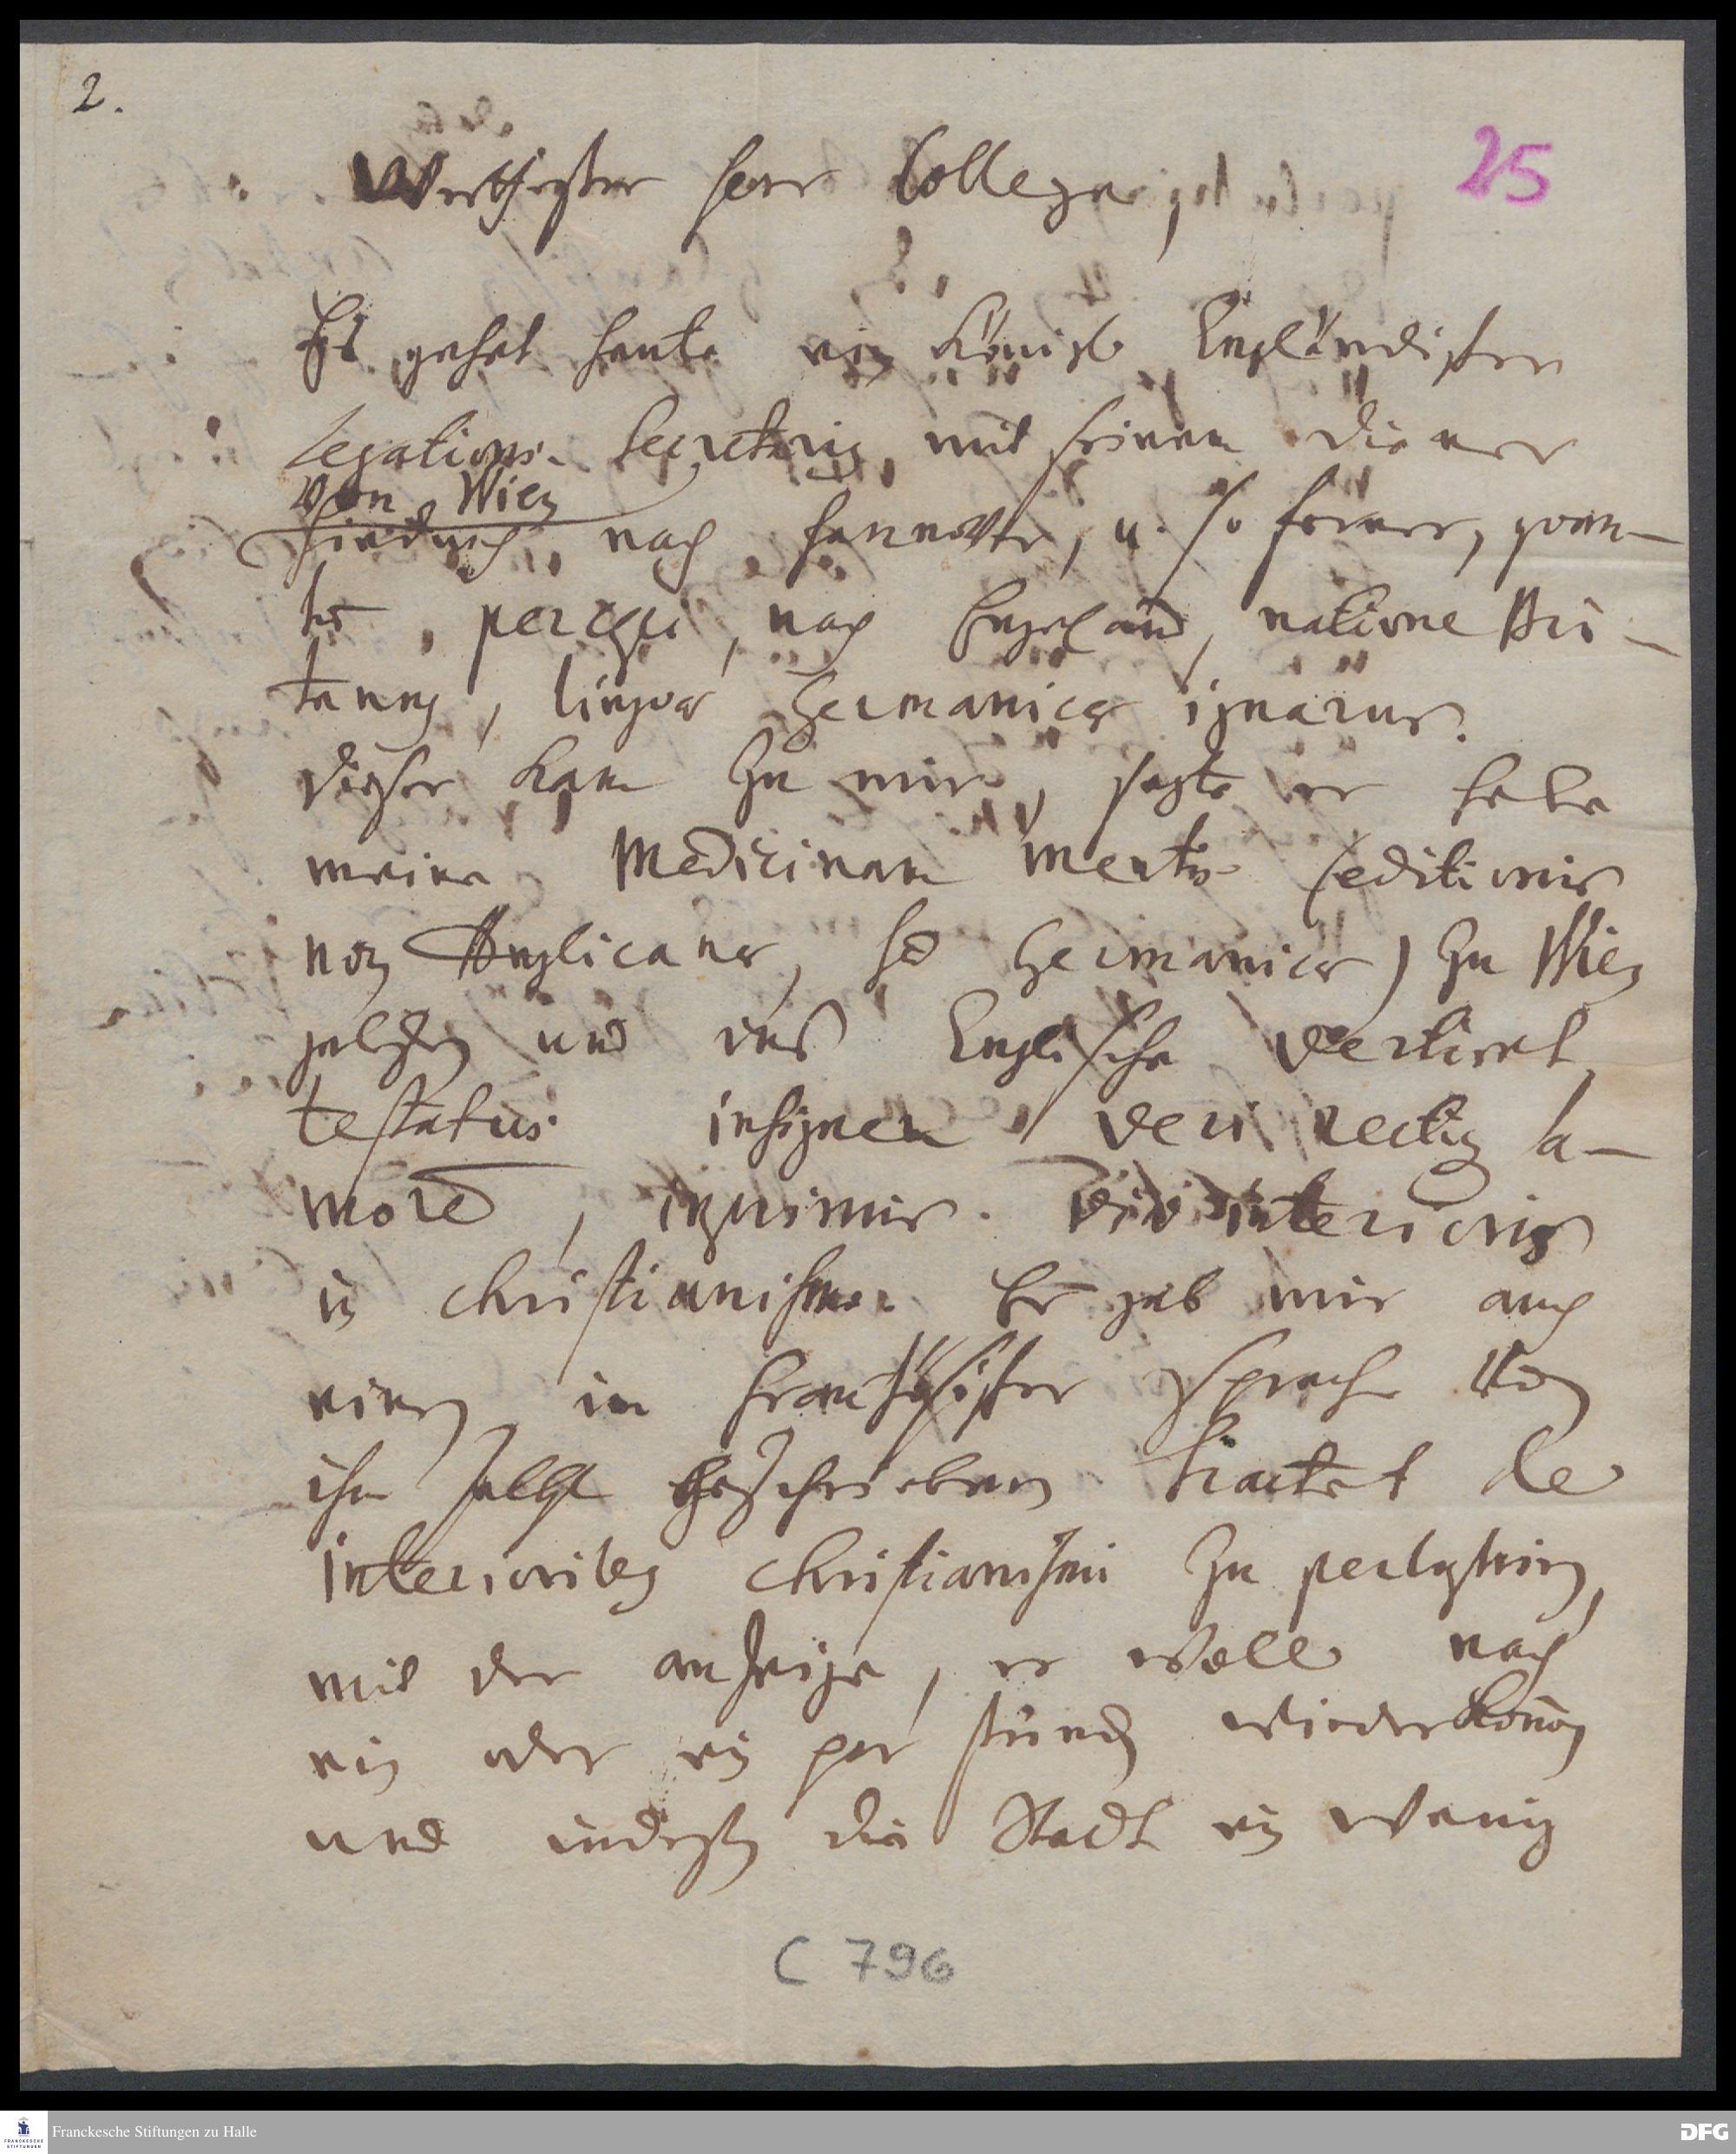 2.
25
Werthester Herr Collega,
Es gehet heute ein Königl. Engländischer
Legations-Secretarius, mit seinem Diener
von Wien
hindurch nach Hannover, u. so ferner, quan-
to , nach Engeland, natione Bri-
tannus, linguae Germanicae ignarus.
dieser kam zu mir, sagte er habe
meine Medicinam Mentis (editionis
non Anglicanae, sed Germanicae) zu Wien
gelesen und ins Englische vertiret,
testatus insignem veri rectique a-
morem, inprimis interioris
in Christianismo. Er gab mir auch
einen in Frantzösischer Sprache von
ihm selbst geschrieben Tractat de
interioribus Christianismi zu perlustriren,
mit der anzeige, er wolle nach
ein oder ein par stunden wiederkommen
und indessen die Stadt ein wenig
C 796
FRANCKESCHE
STIFTUNGEN
Franckesche Stiftungen zu Halle
DFG